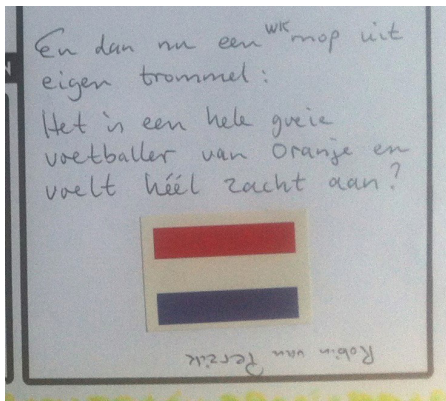 En dan nu een WK mop uit
eigen trommel:
Het is een hele goeie
voetballer van Oranje en
voelt héél zacht aan?
Robin van Perzik